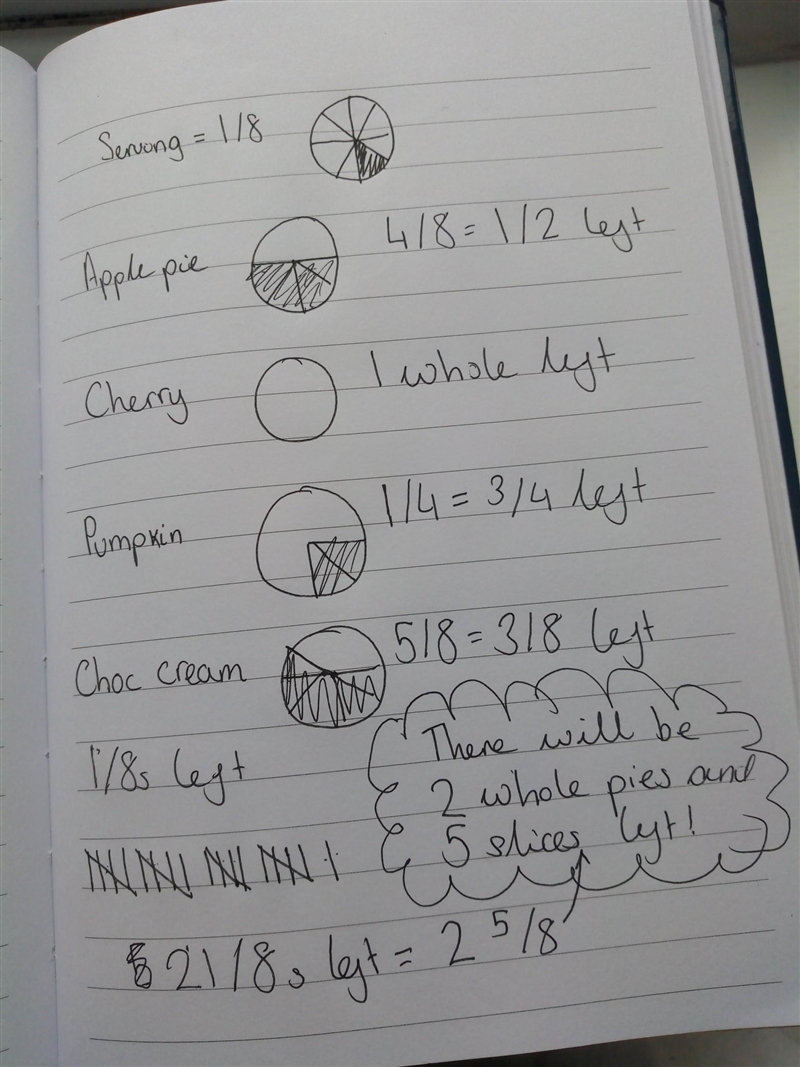 Serving = 1/8
Apple pie 4/8 = 1/2 left
Cherry 1 whole left
Pumpkin 1/4 = 3/4 left
Choc cream 5/8 = 3/8 left
1/8s left
There will be
2 whole pies and
5 slices left!
21/8s left = 2 5/8